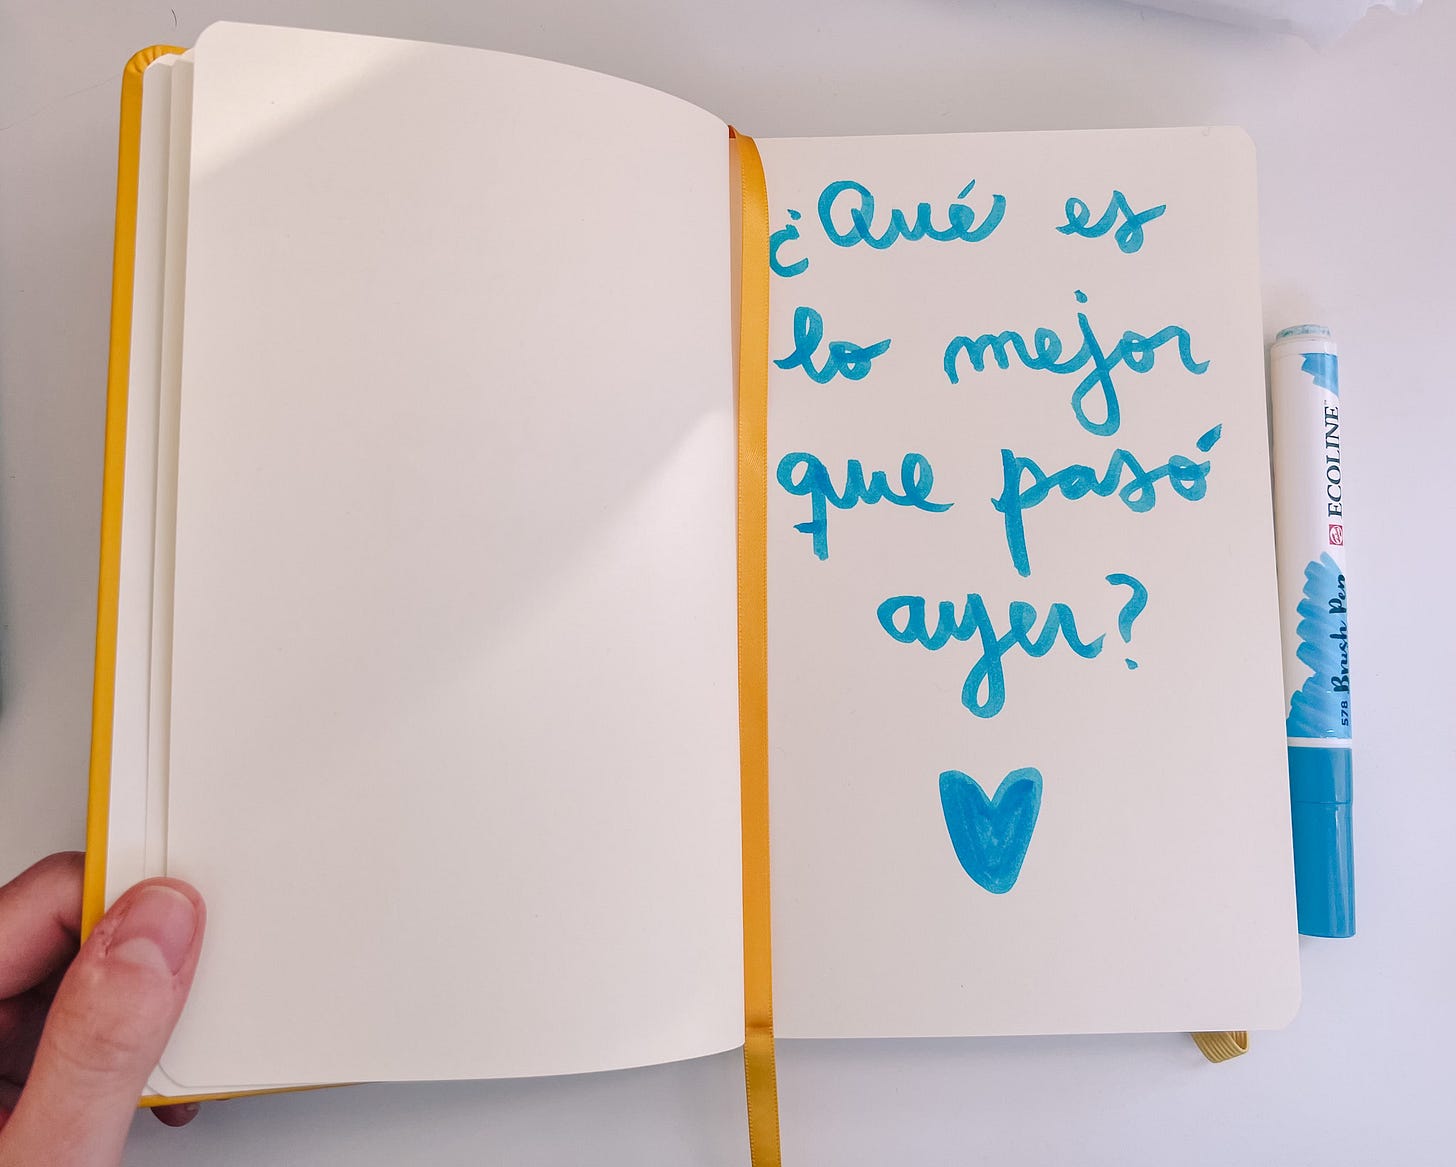 ¿Qué es
lo mejor
que pasó
ayer?
ECOLINE
Brush Pen
578